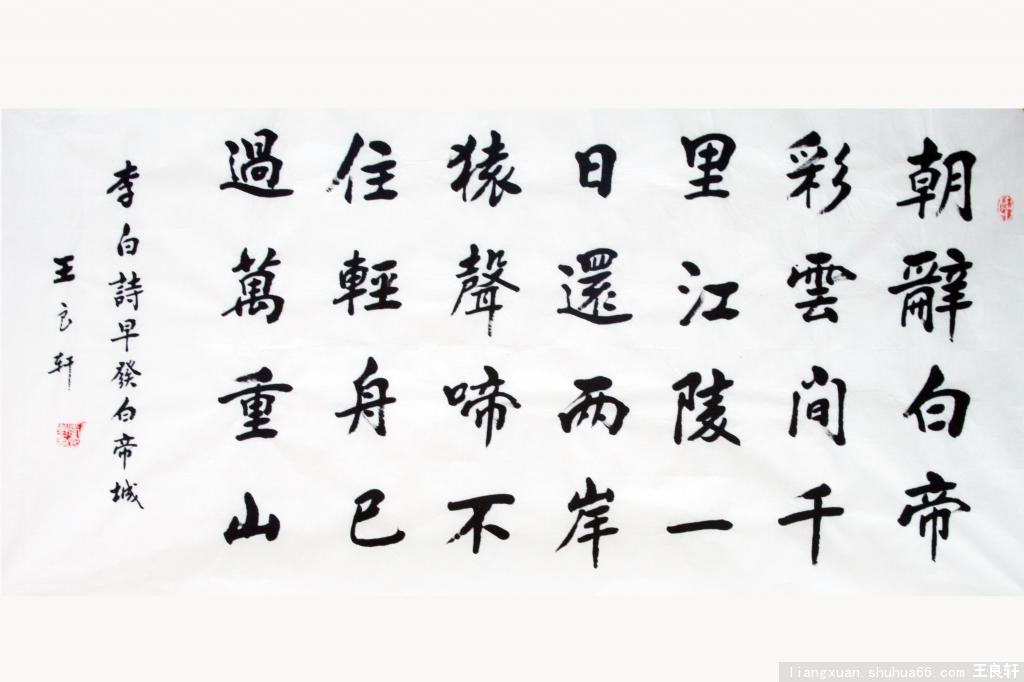 朝辭白帝
彩雲间千
里江陵一
日還两岸
猿聲啼不
住輕舟已
過萬重山
李白詩早發白帝城
王良轩
liangxuan.shuhua66.com 王良轩